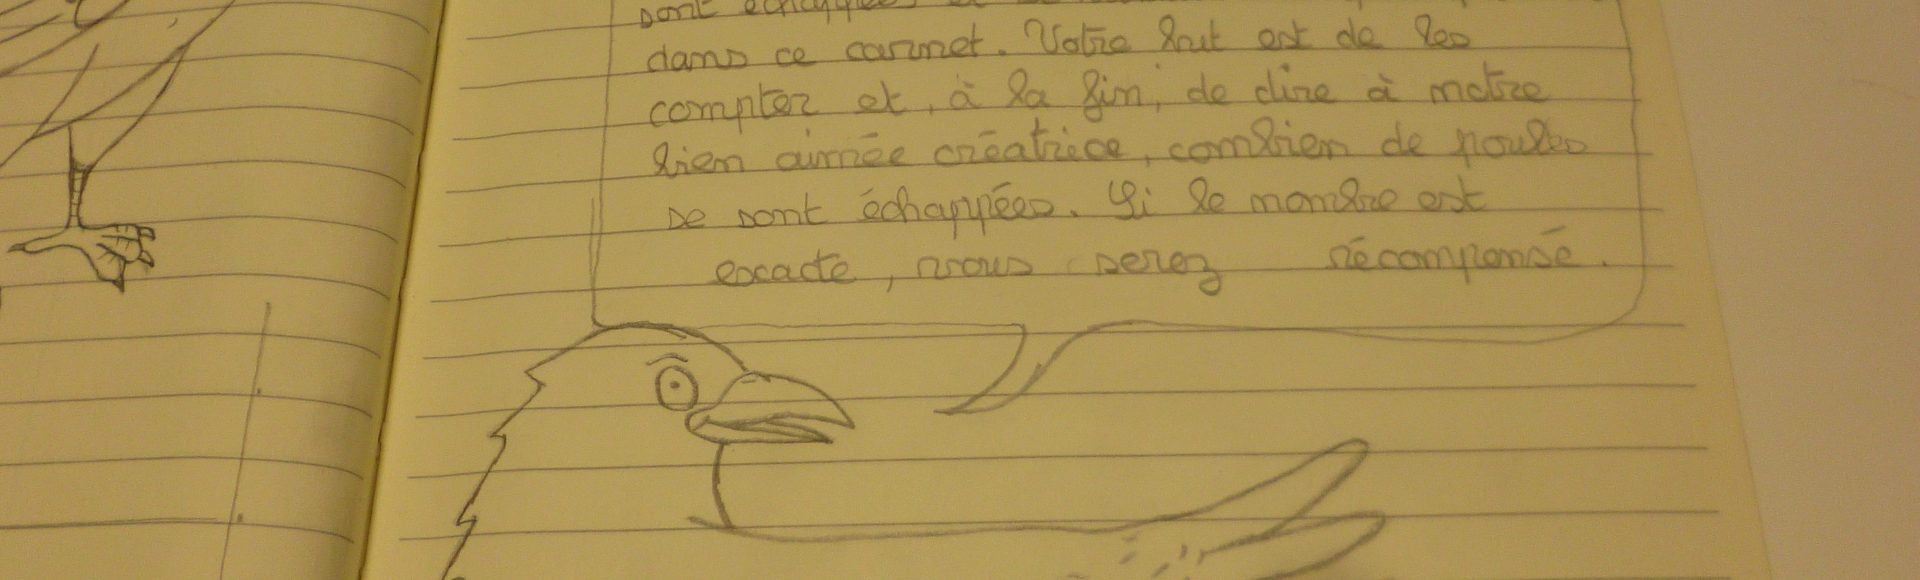 sont échappées
dans ce carnet. Votre but est de les
compter et, à la fin, de dire à notre
bien aimée créatrice, combien de poules
se sont échappées. Si le nombre est
exacte, vous serez récompensé.